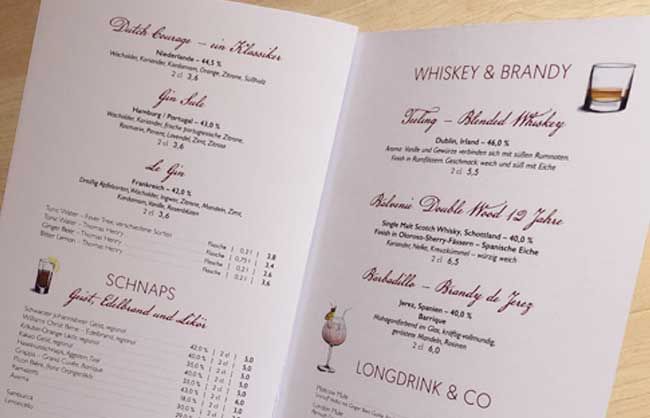 Dutch Courage – ein Klassiker
Niederlande – 44,5 %
Wacholder, Koriander, Kardamom, Orange, Zitrone, Süßholz
2 cl 3,6
Gin Sule
Hamburg / Portugal – 43,0 %
Wacholder, Koriander, frische portugiesische Zitrone,
Rosmarin, Piment, Lavendel, Zimt, Zitrose
2 cl 3,6
Le Gin
Frankreich – 42,0 %
Dreißig Apfelsorten, Wacholder, Ingwer, Zitrone, Mandeln, Zimt,
Kardamom, Vanille, Rosenblüten
2 cl 3,6
Tonic Water – Fever Tree, verschiedene Sorten Flasche | 0,2 l | 3,8
Tonic Water – Thomas Henry Flasche | 0,75 l | 3,4
Ginger Beer – Thomas Henry Flasche | 0,2 l | 2,6
Bitter Lemon – Thomas Henry Flasche | 0,2 l | 2,6
SCHNAPS
Geist, Edelbrand und Likör
Schwarzer Johannisbeer Geist, regional 42,0 % | 2 cl | 5,0
Williams Christ Birne – Edelbrand, regional 40,0 % | 2 cl
Kräuter-Orange-Likör, regional
Kakao Geist, regional
Haselnussschnaps, Ägypten, Tirol
Grappa – Grand Cuvée, Barrique
Ramazotti
Averna
Sambuca
Limoncello
WHISKEY & BRANDY
Teeling – Blended Whiskey
Dublin, Irland – 46,0 %
Aroma: Vanille und Gewürze verbinden sich mit süßen Rumnoten,
Finish in Rumfässern, Geschmack weich und süß mit Eiche
2 cl 5,5
Balvenie Double Wood 12 Jahre
Single Malt Scotch Whisky, Schottland – 40,0 %
Finish in Oloroso-Sherry-Fässern – Spanische Eiche
Koriander, Nelke, Kreuzkümmel – würzig weich
2 cl 6,5
Barbadillo – Brandy de Jerez
Jerez, Spanien – 40,0 %
Barrique
Mahagonifarbend im Glas, kräftig-vollmundig,
geröstete Mandeln, Rosinen
2 cl 6,0
LONGDRINK & CO
Moscow Mule
London Mule